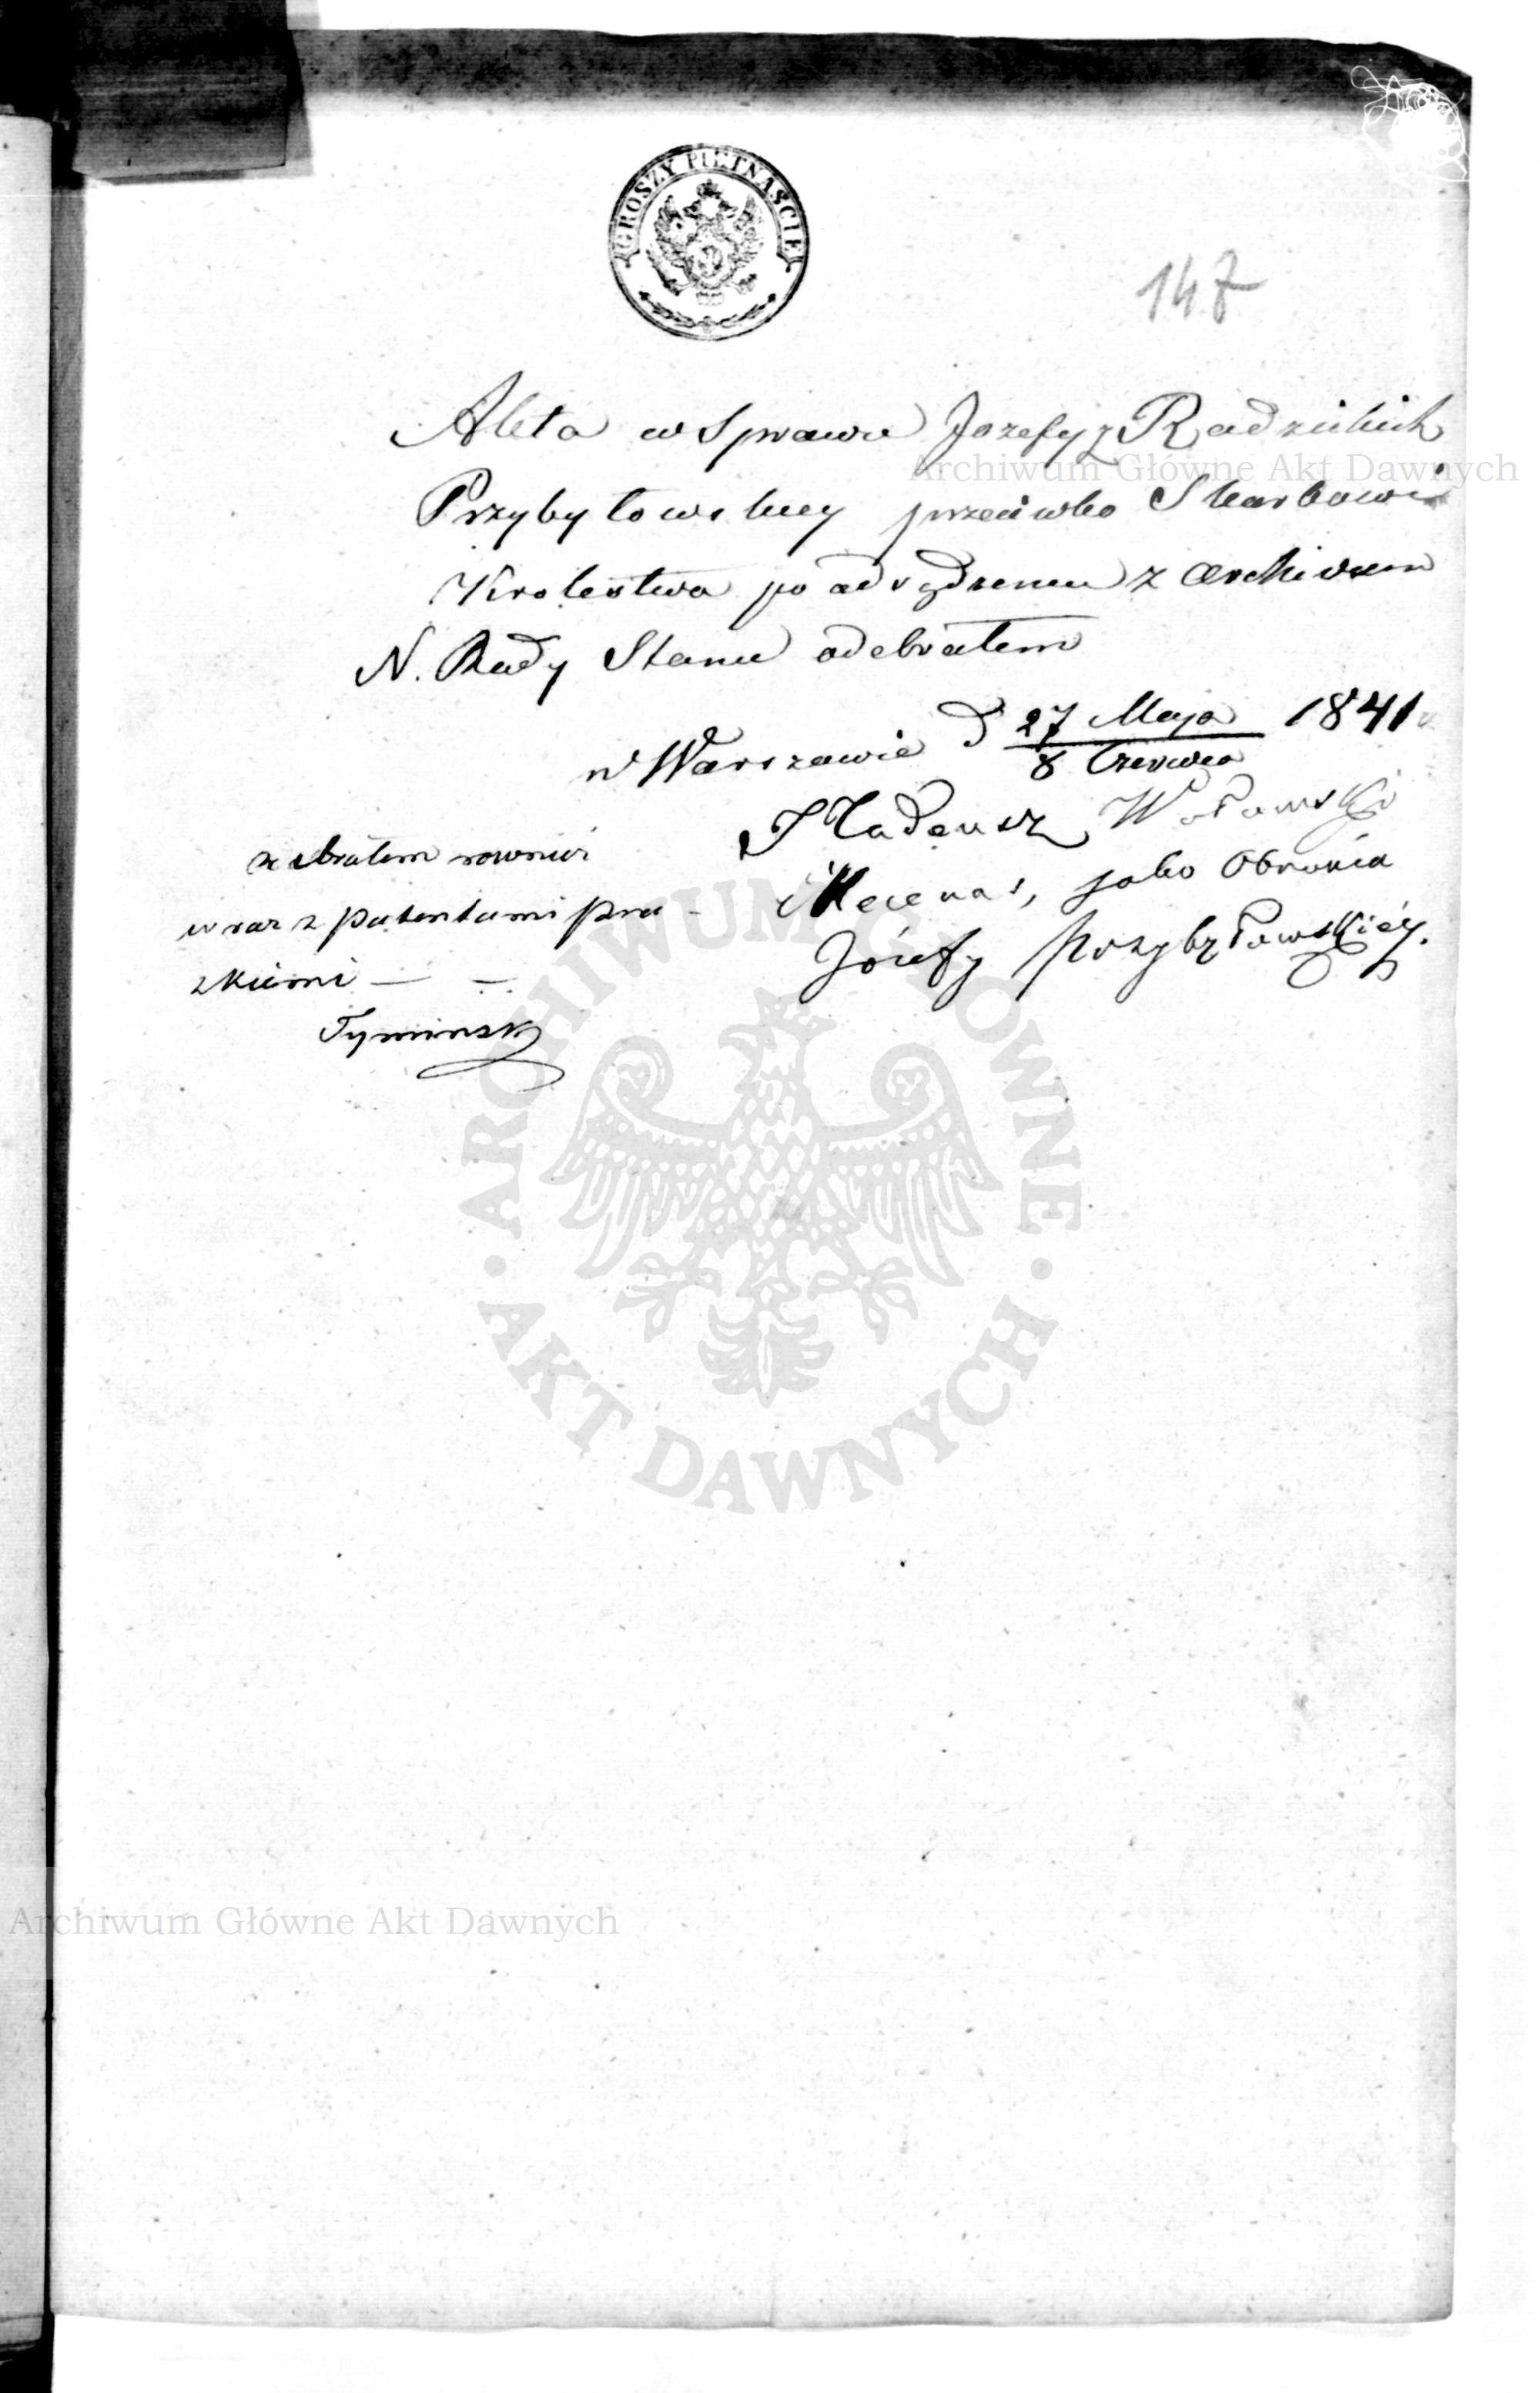 GROSZY PIĘTNAŚCIE
147
Akta w Sprawie Jozefy z Radzickich
Przybyłowskiey przeciwko Skarbowi
Krolestwa po odsądzeniu z Archiwum
N. Rady Stanu odebrałem
w Warszawie d 27 Maja / 8 Czerwca 1841
Tadeusz Wołowski
Mecenas, jako Obrońca
Józefy Przybyłowskiéy.
odebrałem rowniez
wraz z patentami pru-
zkiemi — —
Tyminski
Archiwum Główne Akt Dawnych
ARCHIWUM GŁÓWNE · AKT DAWNYCH ·
Archiwum Główne Akt Dawnych